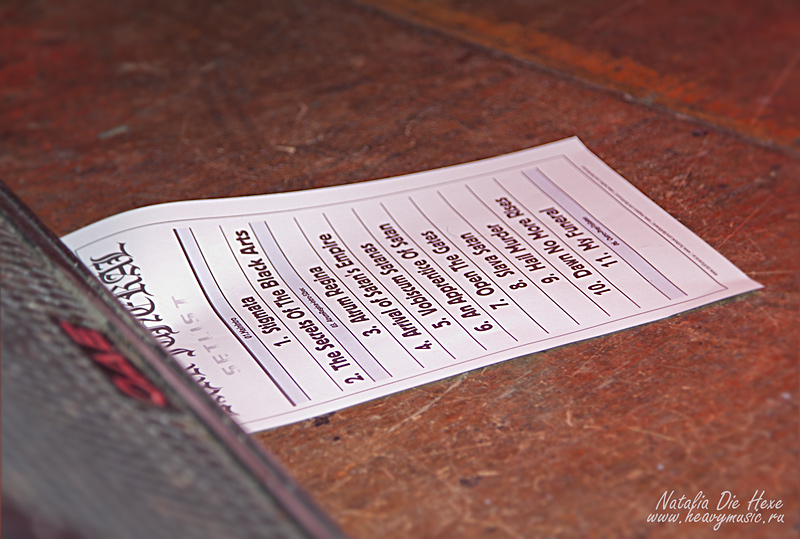 SETLIST
1. Signata
2. The Secrets Of The Black Arts
3. Atrum Regina
4. Arrival of Satan's Empire
5. Vobiscum Satanas
6. An Apprentice Of Satan
7. Open The Gates
8. Slava Satan
9. Hail Murder
10. Dawn No More Rises
11. My Funeral
Natalia Die Hexe
www.heavymusic.ru